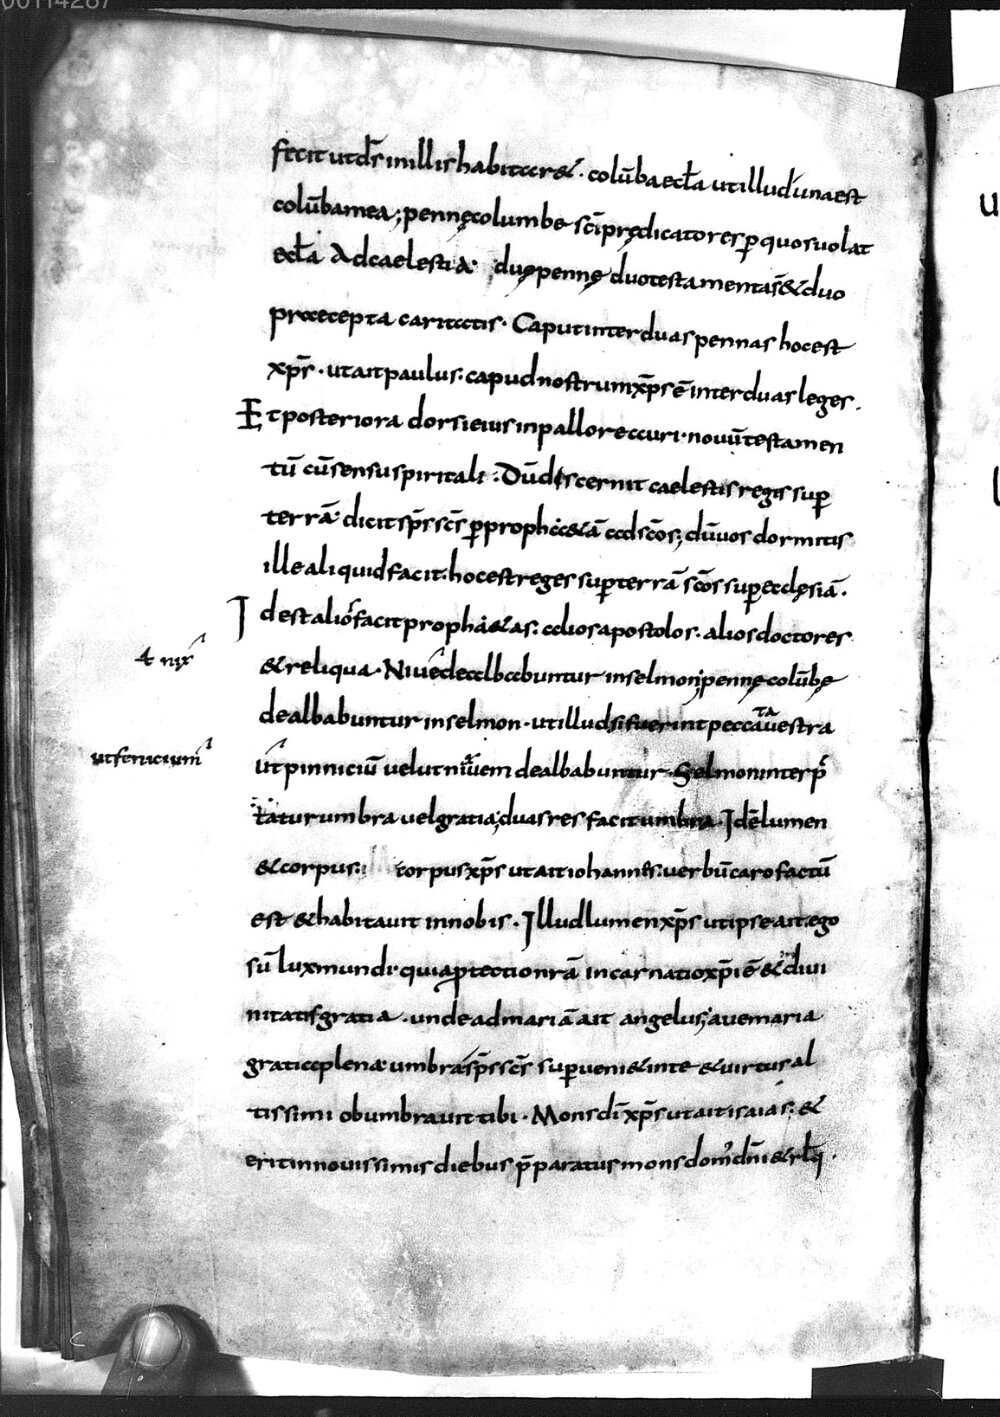 00114287
fecit ut ds̄ in illis habitar&. colūba eccła ut illud una est
colūba mea; pennę columbe sc̄i prędicatores p̱ quos uolat
eccła Ad caelestia; duę pennę duo testamenta s̄ & duo
praecepta caritatis. Caput inter duas pennas hoc est
xp̄s. ut ait paulus. capud nostrum xp̄s ē inter duas leges.
Et posteriora dorsi eius in pallore auri. nouū testamen
tū cū sensu spiritali. Dū discernit caelestis regis sup̱
terrā dicit sp̄s sc̄s p̱ proph&ā ad sc̄os; dū uos dormitis
ille aliquid facit. hoc est reges sup̱ terrā sc̄os sup̱ ecclęsiā.
Id est alios facit proph&as. alios apostolos. alios doctores
& reliqua. Niue dealbabuntur in selmon; pennę colūbę
ł nix
dealbabuntur in selmon. ut illud si fuerint peccata uestra
ut fenicium
ut pinniciū uelut niuem dealbabuntur. Selmon interp̄
tatur umbra uel gratia; duas res facit umbra. Id ē lumen
& corpus. corpus xp̄s ut ait iohannes. uerbū caro factū
est & habitauit in nobis. Illud lumen xp̄s ut ipse ait. ego
sū lux mundi. quia p̱tectio nr̄a incarnatio xp̄i ē & diui
nitatis gratia. unde ad mariā ait angelus; aue maria
gratia plena umbra sp̄s sc̄s sup̱ueni& in te & uirtus al
tissimi obumbrauit tibi. Mons dī xp̄s ut ait isaias. &
erit in nouissimis diebus p̄paratus mons dom' dn̄i & rłq.